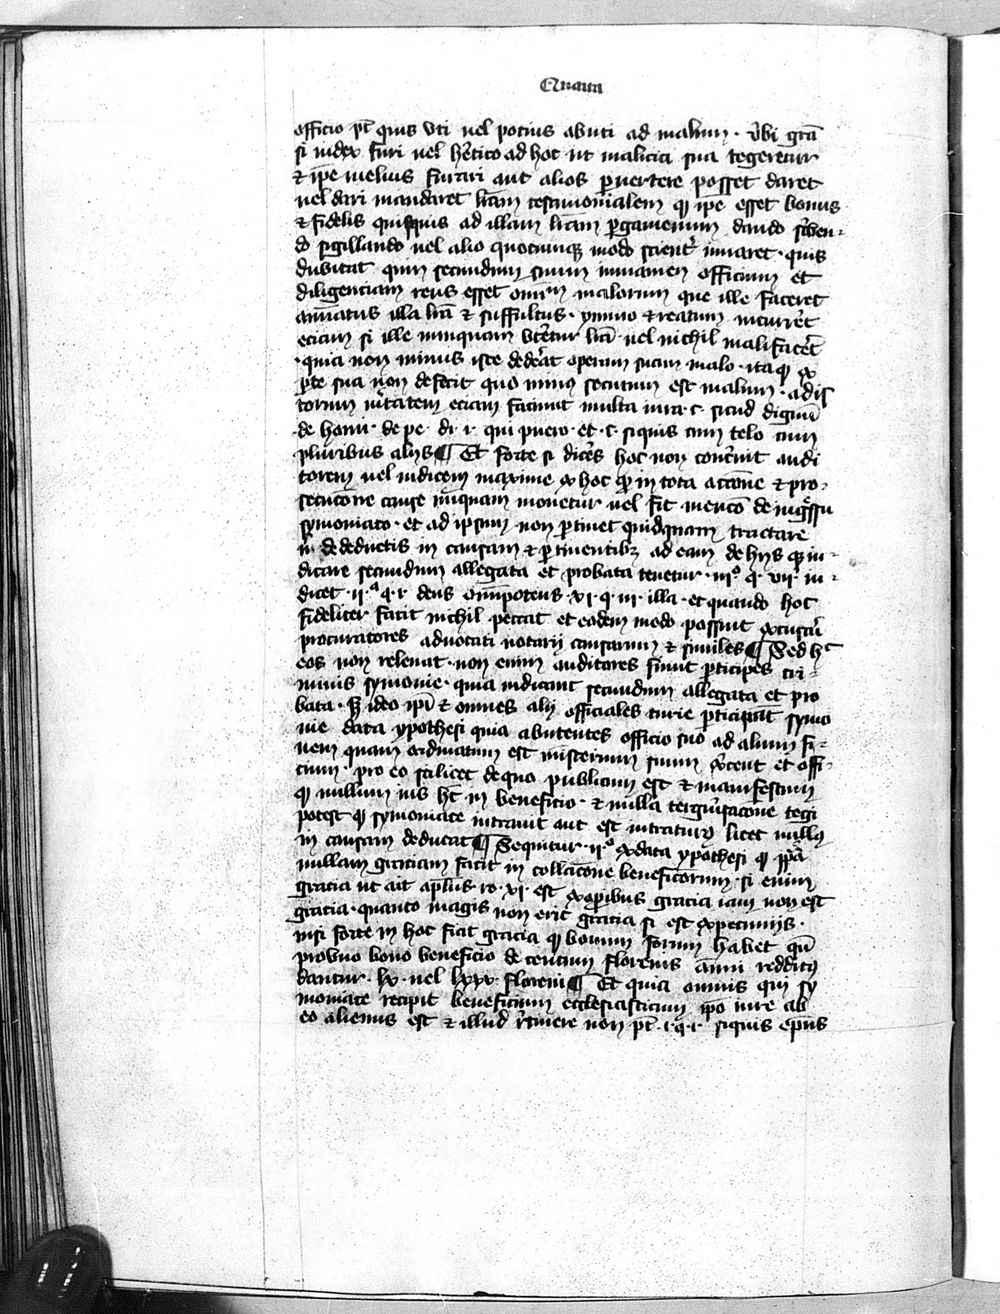 Quarta
officio pt̄ quis vti uel potius abuti ad malum · vbi grā
si iudex furi uel hētico ad hoc ut malicia sua tegeretur
⁊ ip̄e melius furari aut alios ꝑuertere posset daret
uel dari mandaret lr̄am testimonialem ꝙ ip̄e esset bonus
⁊ fidelis quisquis ad illam lr̄am ꝑgamenum dando sc̄ben-
do sigillando uel alio quocumqꝫ modo scient̄ iuuaret · quis
dubitat quin secundum suum iuuamen officium et
diligenciam reus esset om̄iū malorum que ille faceret
armatus illa lr̄a ⁊ suffultus · ymmo ⁊ reatum incurret
eciam si ille numquam vteretur lr̄a uel nichil mali faceret
· quia non minus iste dederat operam suam malo · itaꝙ ex
ꝑte sua non defecit quo minus secutum est malum · ad is
torum ueritatem eciam faciunt multa iura · c · sicud dignum
de homi · de pe · di · i · qui puero · et · c · siquis cum telo cum
pluribus alijs ¶ Et forte si dices hoc non concernit audi
torem uel iudicem maxime ex hoc ꝙ in tota accōne ⁊ pro-
secucōne cause nūquam monetur uel fit mencō de ingressu
symoniaco · et ad ipsum non ꝑtinet quidquam tractare
n̄ de deductis in causam ⁊ ꝑtinentibꝫ ad eam de hijs ꝙ iu-
dicare secundum allegata et probata tenetur · iiiᵒ · q · vii · iu-
dicet · iiᵃ · q · i · deus om̄ipotens · vi · q · iii · illa · et quando hoc
fideliter facit nichil peccat et eodem modo possunt excusari
procuratores aduocati notarij causarum ⁊ similes ¶ Sed hᶜ
eos non releuat · non enim auditores fiunt ꝑticipes cri-
minis symonie · quia iudicant secundum allegata et pro
bata · Sꝫ ideo ip̄i ⁊ omnes alij officiales curie ꝑticipant symo
nie data ypothesi quia abutentes officio suo ad alium fi-
nem quam ordinatum est misterium suum ex̄cent et offi-
cium · pro eo scilicet de quo publicum est ⁊ manifestum
ꝙ nullum ius hēt in beneficio · ⁊ nulla tergiūsacōne tegi
potest ꝙ symoniace intrauit aut est intraturus licet nullus
in causam deducat ¶ Sequitur · iiᵒ ex data ypothesi ꝙ pp̄a
nullam graciam facit in collacōne beneficiorum · si enim
gracia ut ait ap̄lus · ro · xi · est ex oꝑibus gracia iam non est
gracia · quanto magis non erit gracia si est ex pecuniis ·
nisi forte in hoc fiat gracia ꝙ bonum forum habet qn̄
pro vno bono beneficio de centum florenis anni redditus
dantur · lx · uel lxxx · floreni ¶ Et quia omnis qui sy
moniace recipit beneficium ecclesiasticum ipo iure ab
eo alienus est ⁊ illud r̄tinere non pt̄ · i · q · i · siquis ep̄us